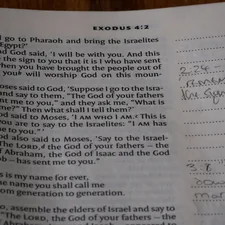 EXODUS 4:2
I go to Pharaoh and bring the Israelites
Egypt?'
nd God said, 'I will be with you. And this
e the sign to you that it is I who have sent
hen you have brought the people out of
you will worship God on this moun-
oses said to God, 'Suppose I go to the Isra-
nd say to them, "The God of your fathers
nt me to you," and they ask me, "What is
me?" Then what shall I tell them?'
od said to Moses, 'I AM WHO I AM. This is
ou are to say to the Israelites: "I AM has
e to you."'
od also said to Moses, 'Say to the Israel-
The LORD, the God of your fathers – the
f Abraham, the God of Isaac and the God
ob – has sent me to you."
is my name for ever,
name you shall call me
om generation to generation.
o, assemble the elders of Israel and say to
"The LORD, the God of your fathers – the